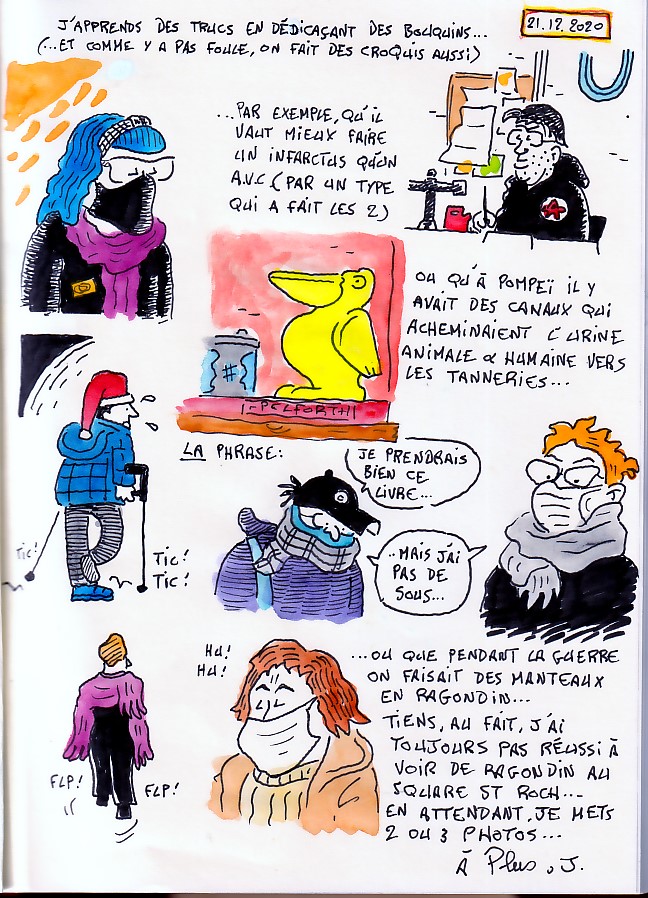 J'APPRENDS DES TRUCS EN DÉDICAÇANT DES BOUQUINS...
(...ET COMME Y A PAS FOULE, ON FAIT DES CROQUIS AUSSI)
21.12.2020
...PAR EXEMPLE, QU'IL
VAUT MIEUX FAIRE
UN INFARCTUS QU'UN
A.V.C. (PAR UN TYPE
QUI A FAIT LES 2)
OU QU'À POMPEÏ IL Y
AVAIT DES CANAUX QUI
ACHEMINAIENT L'URINE
ANIMALE & HUMAINE VERS
LES TANNERIES...
#
PELFORTH
LA PHRASE:
JE PRENDRAIS
BIEN CE
LIVRE...
..MAIS J'AI
PAS DE
SOUS...
TIC!
TIC!
TIC!
HU!
HU!
FLP!
FLP!
...OU QUE PENDANT LA GUERRE
ON FAISAIT DES MANTEAUX
EN RAGONDIN...
TIENS, AU FAIT, J'AI
TOUJOURS PAS RÉUSSI À
VOIR DE RAGONDIN AU
SQUARE ST ROCH...
EN ATTENDANT, JE METS
2 OU 3 PHOTOS...
À Plus, J.